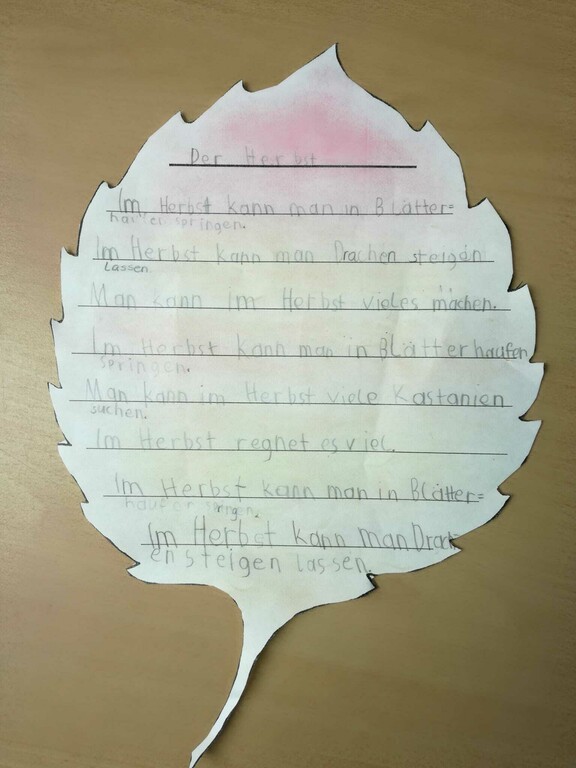 Der Herbst
Im Herbst kann man in Blätter=
haufen springen.
Im Herbst kann man Drachen steigen
Lassen.
Man kann Im Herbst vieles machen.
Im Herbst kann man in Blätterhaufen
springen.
Man kann im Herbst viele Kastanien
suchen.
Im Herbst regnet es viel.
Im Herbst kann man in Blätter=
haufen springen.
Im Herbst kann man Drach
en steigen lassen.